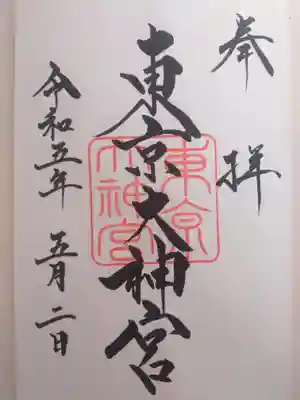 奉拝
東京大神宮
東京大神宮
令和五年 五月二日